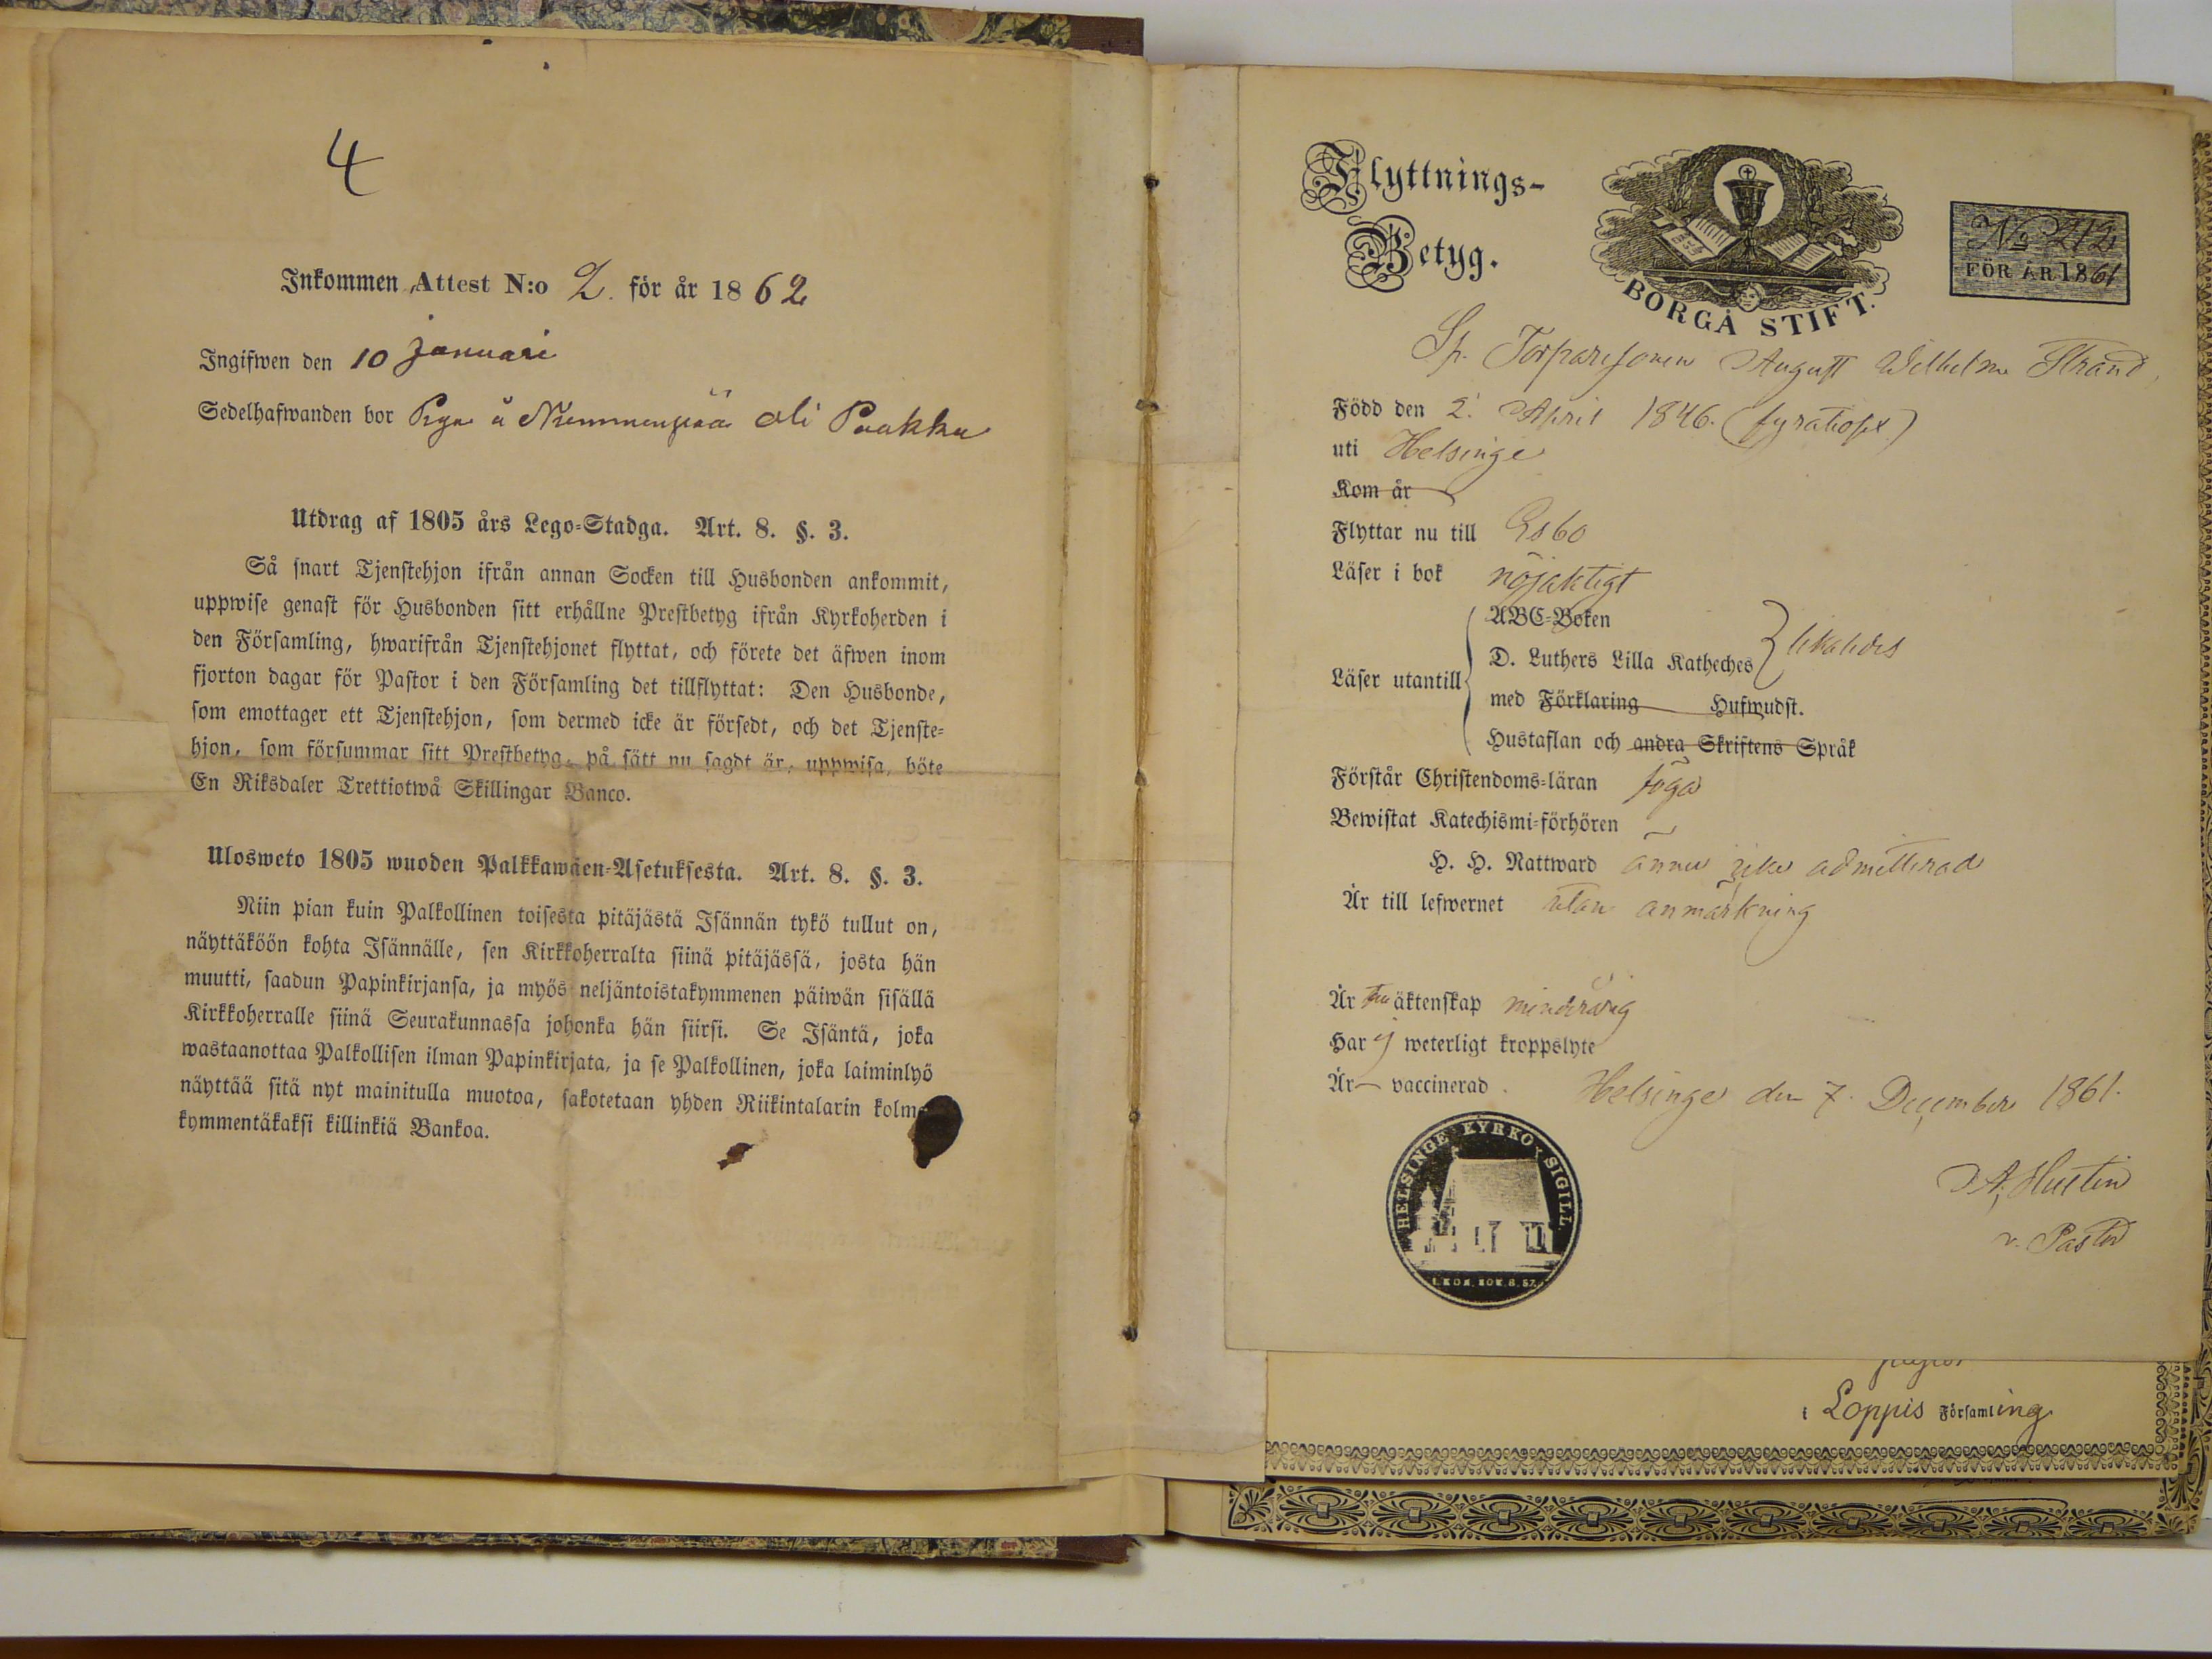 4
Inkommen Attest N:o 2. för år 1862
Ingifwen den 10 Januari
Sedelhafwanden bor Piga å Nummenpää Oli Paakku
Utdrag af 1805 års Lego-Stadga. Art. 8. §. 3.
Så snart Tjenstehjon ifrån annan Socken till Husbonden ankommit,
uppwise genast för Husbonden sitt erhållne Prestbetyg ifrån Kyrkoherden i
den Församling, hwarifrån Tjenstehjonet flyttat, och förete det äfwen inom
fjorton dagar för Pastor i den Församling det tillflyttat: Den Husbonde,
som emottager ett Tjenstehjon, som dermed icke är försedt, och det Tjenste-
hjon, som försummar sitt Prestbetyg, på sätt nu sagdt är, uppwisa, böte
En Riksdaler Trettiotwå Skillingar Banco.
Ulosweto 1805 wuoden Palkkawäen-Asetuksesta. Art. 8. §. 3.
Niin pian kuin Palkollinen toisesta pitäjästä Isännän tykö tullut on,
näyttäköön kohta Isännälle, sen Kirkkoherralta siinä pitäjässä, josta hän
muutti, saadun Papinkirjansa, ja myös neljäntoistakymmenen päiwän sisällä
Kirkkoherralle siinä Seurakunnassa johonka hän siirsi. Se Isäntä, joka
wastaanottaa Palkollisen ilman Papinkirjata, ja se Palkollinen, joka laiminlyö
näyttää sitä nyt mainitulla muotoa, sakotetaan yhden Riikintalarin kolme
kymmentäkaksi killinkiä Bankoa.
Flyttnings-
Betyg.
BORGÅ STIFT.
No 212
FÖR ÅR 1861
Sp. Torparesonen August Wilhelm Strand,
Född den 2. April 1846. (fyratiosex)
uti Helsinge
Kom år
Flyttar nu till Esbo
Läser i bok nöjaktigt
ABC-Boken
D. Luthers Lilla Katheches likaledes
Läser utantill
med Förklaring Hufwudst.
Hustaflan och andra Skriftens Språk
Förstår Christendoms-läran föga
Bewistat Katechismi-förhören
H. H. Nattward ännu icke admitterad
Är till lefwernet utan anmärkning
Är äktenskap minderårig
Har ej weterligt kroppslyte
Är vaccinerad.
Helsinge den 7. December 1861.
HELSINGE KYRKO SIGILL
I. KON. BOK. 8. 57.
v. Pastor
i Loppis Församling